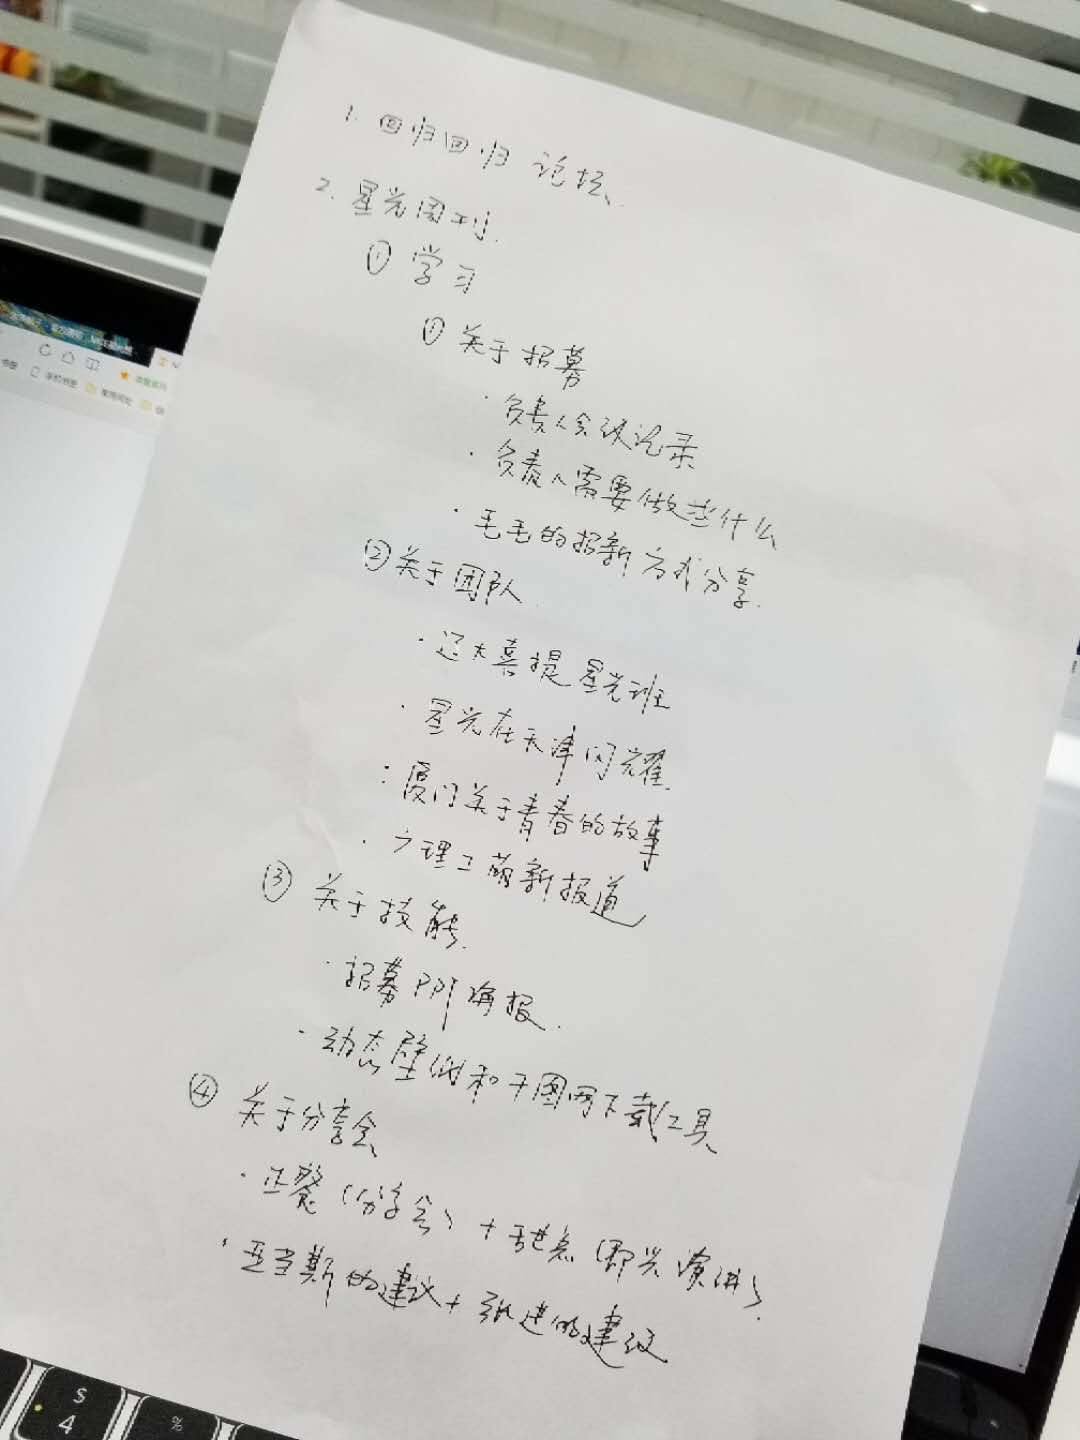 1. 回归回归 论坛
2. 星光周刊.
① 学习
① 关于招募
· 负责人会议记录
· 负责人需要做些什么
· 毛毛的招新方式分享.
② 关于团队.
· 辽大喜提星光班
· 星光在天津闪耀
· 厦门关于青春的故事
· 广理工萌新报道
③ 关于技能.
· 招募PPT海报.
· 动态壁纸和千图网下载工具
④ 关于分享会
· 正餐(分享会) + 甜点(即兴演讲).
· 亚当斯的建议 + 张进的建议
S
4
%